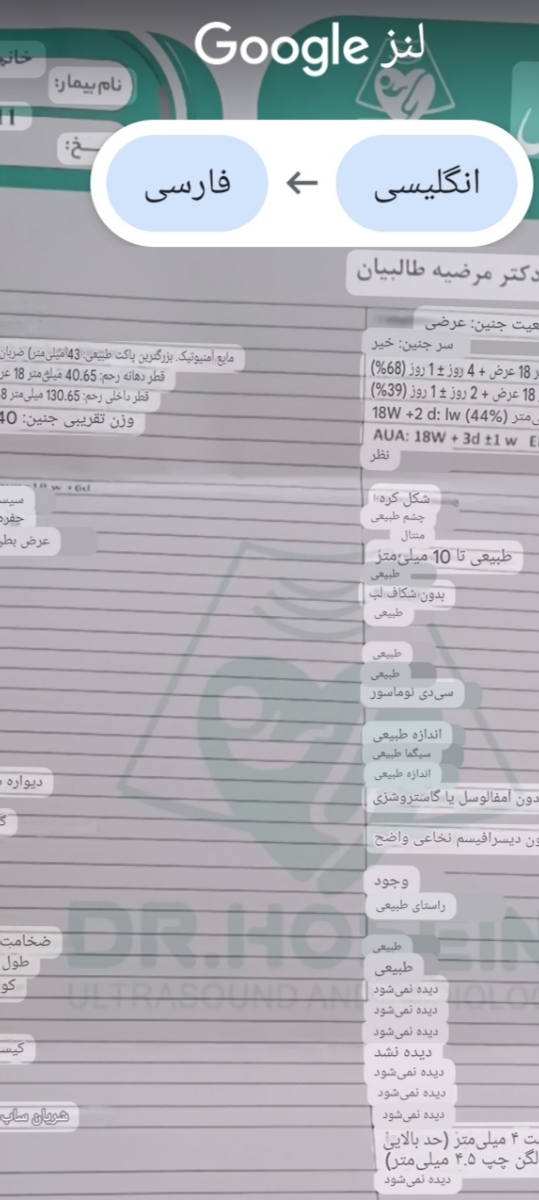 لنز Google
انگلیسی ← فارسی
نام بیمار:
دکتر مرضیه طالبیان
جنین: عرضی
سر جنین: خیر
18 عرض + 4 روز ± 1 روز (68%)
18 عرض + 2 روز ± 1 روز (39%)
18W +2 d: lw (44%)
AUA: 18W + 3d ±1 w
نظر
مایع آمنیوتیک. بزرگترین پاکت طبیعی: 43 میلی‌متر) ضربان
قطر دهانه رحم: 40.65 میلی‌متر 18
قطر داخلی رحم: 130.65 میلی‌متر
وزن تقریبی جنین:
شکل کره
چشم طبیعی
منتال
طبیعی تا 10 میلی‌متر
طبیعی
بدون شکاف لب
طبیعی
طبیعی
طبیعی
سی‌دی نوماسور
اندازه طبیعی
سیگما طبیعی
اندازه طبیعی
آمفالوسل یا گاستروشزی
دیسرافیسم نخاعی واضح
وجود
راستای طبیعی
طبیعی
طبیعی
دیده نمی‌شود
دیده نمی‌شود
دیده نمی‌شود
دیده نشد
دیده نمی‌شود
دیده نمی‌شود
دیده نمی‌شود
۴ میلی‌متر (حد بالایی
لگن چپ ۴.۵ میلی‌متر)
دیده نمی‌شود
عرض
دیواره
ضخامت
طول
شریان
DR.HOSEIN
ULTRASOUND AND